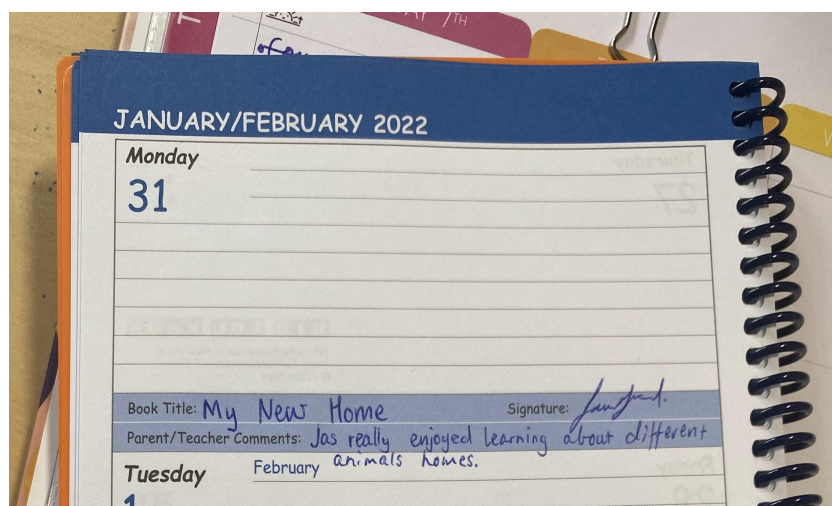 7TH
JANUARY/FEBRUARY 2022
Monday
31
Thursday
27
Book Title: My New Home Signature:
Parent/Teacher Comments: Jas really enjoyed learning about different
animals homes.
Tuesday February
1
Friday